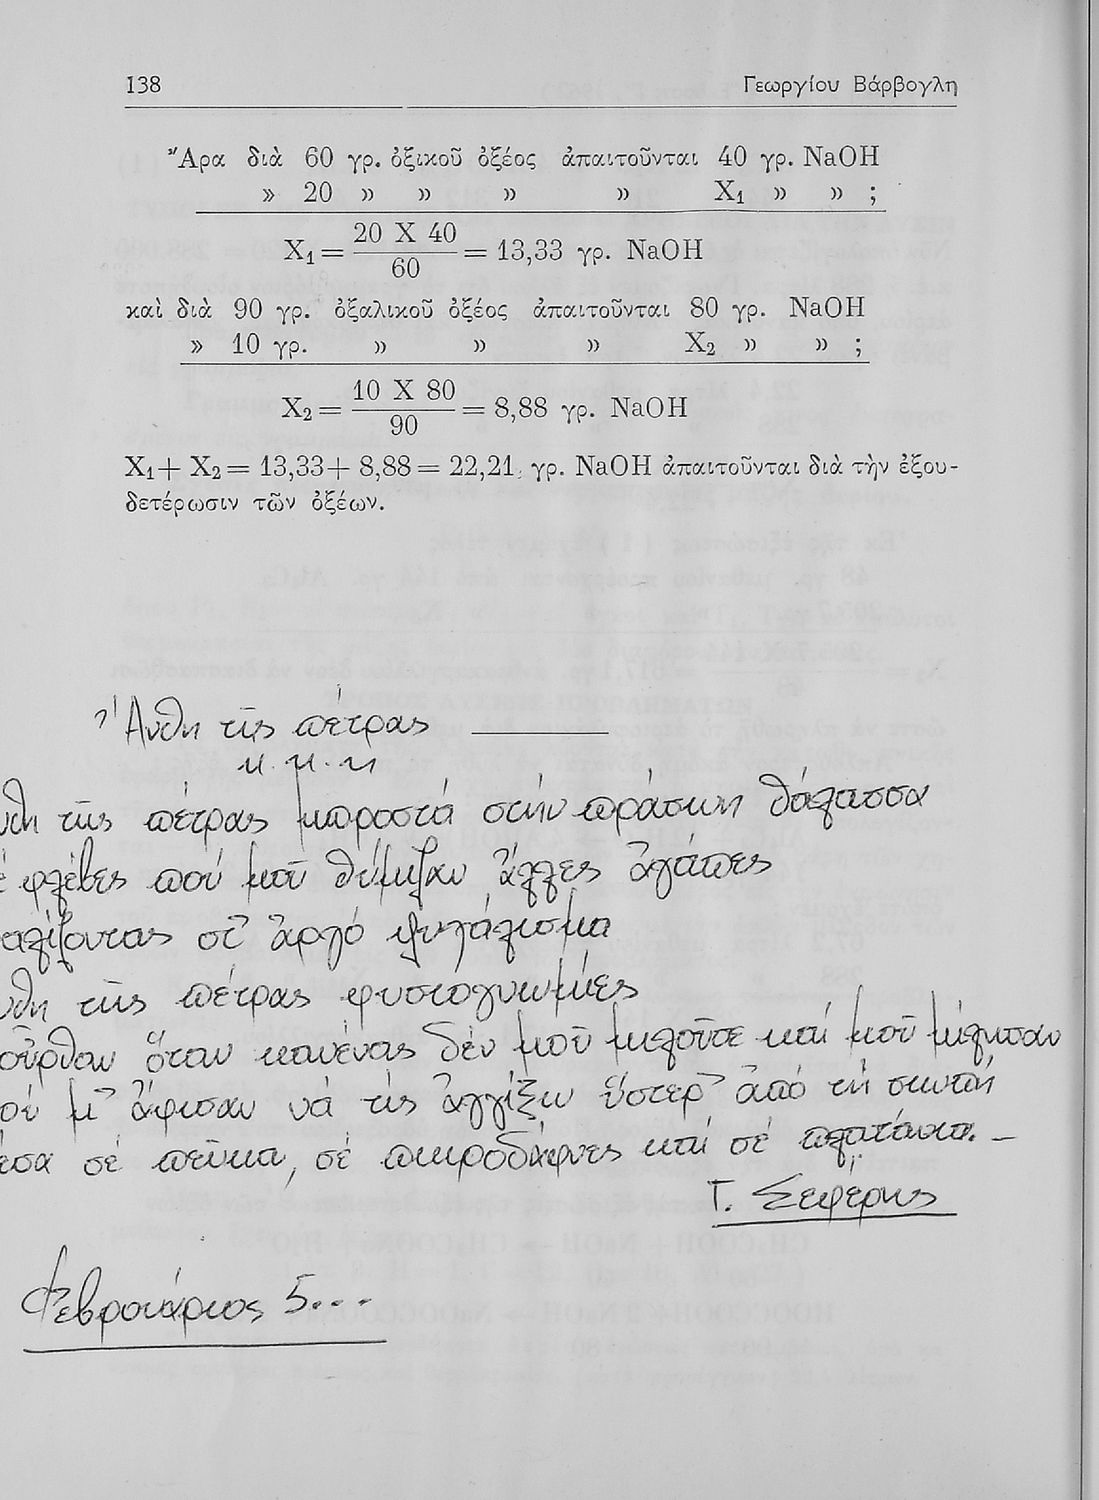 138 Γεωργίου Βάρβογλη
Ἄρα διὰ 60 γρ. ὀξικοῦ ὀξέος ἀπαιτοῦνται 40 γρ. NaOH
» 20 » » » » X₁ » » ;
X₁ = 20 X 40 / 60 = 13,33 γρ. NaOH
καὶ διὰ 90 γρ. ὀξαλικοῦ ὀξέος ἀπαιτοῦνται 80 γρ. NaOH
» 10 γρ. » » » X₂ » » ;
X₂ = 10 X 80 / 90 = 8,88 γρ. NaOH
X₁ + X₂ = 13,33 + 8,88 = 22,21 γρ. NaOH ἀπαιτοῦνται διὰ τὴν ἐξου-
δετέρωσιν τῶν ὀξέων.
Ἄνθη τῆς πέτρας
θη τῆς πέτρας μπροστά στήν πράσινη θάλασσα
φλέβες πού μοῦ θύμιζαν ἄλλες ἀγάπες
αλίζοντας στ' ἀργό ψιχάλισμα
θη τῆς πέτρας φυσιογνωμίες
οὖρθαν ὅταν κανένας δέν μοῦ μιλοῦσε καί μοῦ μίλησαν
ού μ' ἄφισαν νά τίς ἀγγίξω ὕστερ' ἀπό τή σιωπή
εσα σέ πεῦκα, σέ πικροδάφνες καί σέ πλατάνια. –
Γ. Σεφέρης
Φεβρουάριος 5...